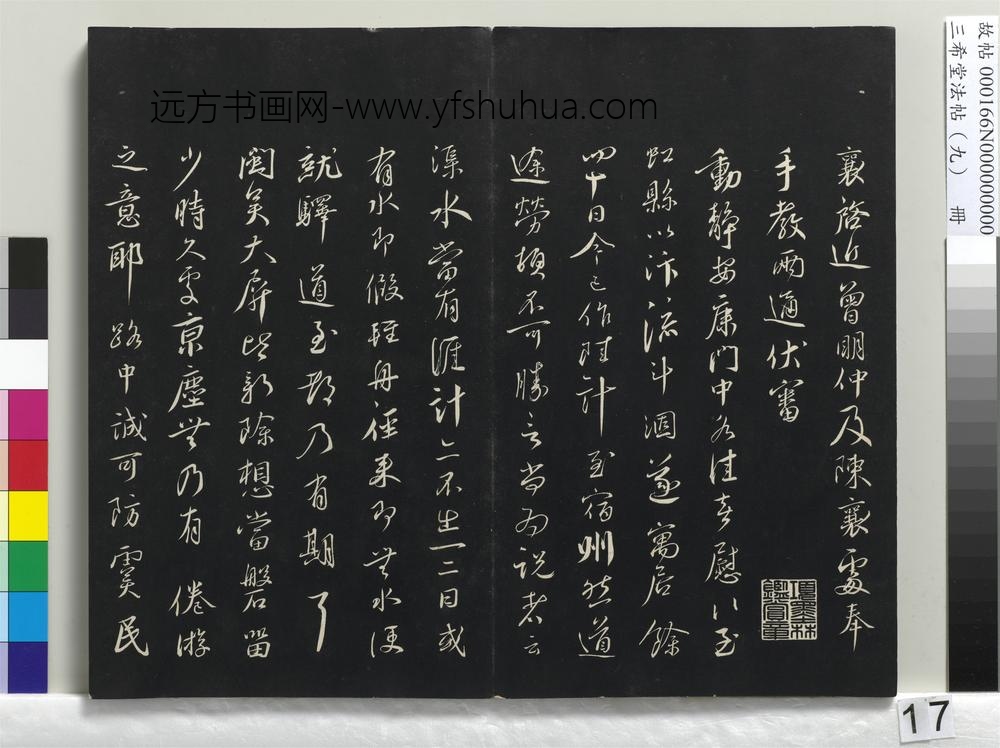 襄啓近曾明仲及陳襄處奉
手教兩通伏審
動靜安康門中各佳喜慰八至
虹縣以汴流斗涸遂寓居餘
四十日今已作陸計至宿州然道
途勞頓不可勝言尚為說者云
渠水當有涯計亦不出一二日或
有水即假輕舟徑來即無水便
就驛道至都乃有期耳
閩吳大屏皆新除想當磐留
少時久處京塵無乃有 倦游
之意耶 路中誠可防 霣民
項墨林鑑賞章
远方书画网-www.yfshuhua.com
故帖 000166N000000000
三希堂法帖（九） 册
17